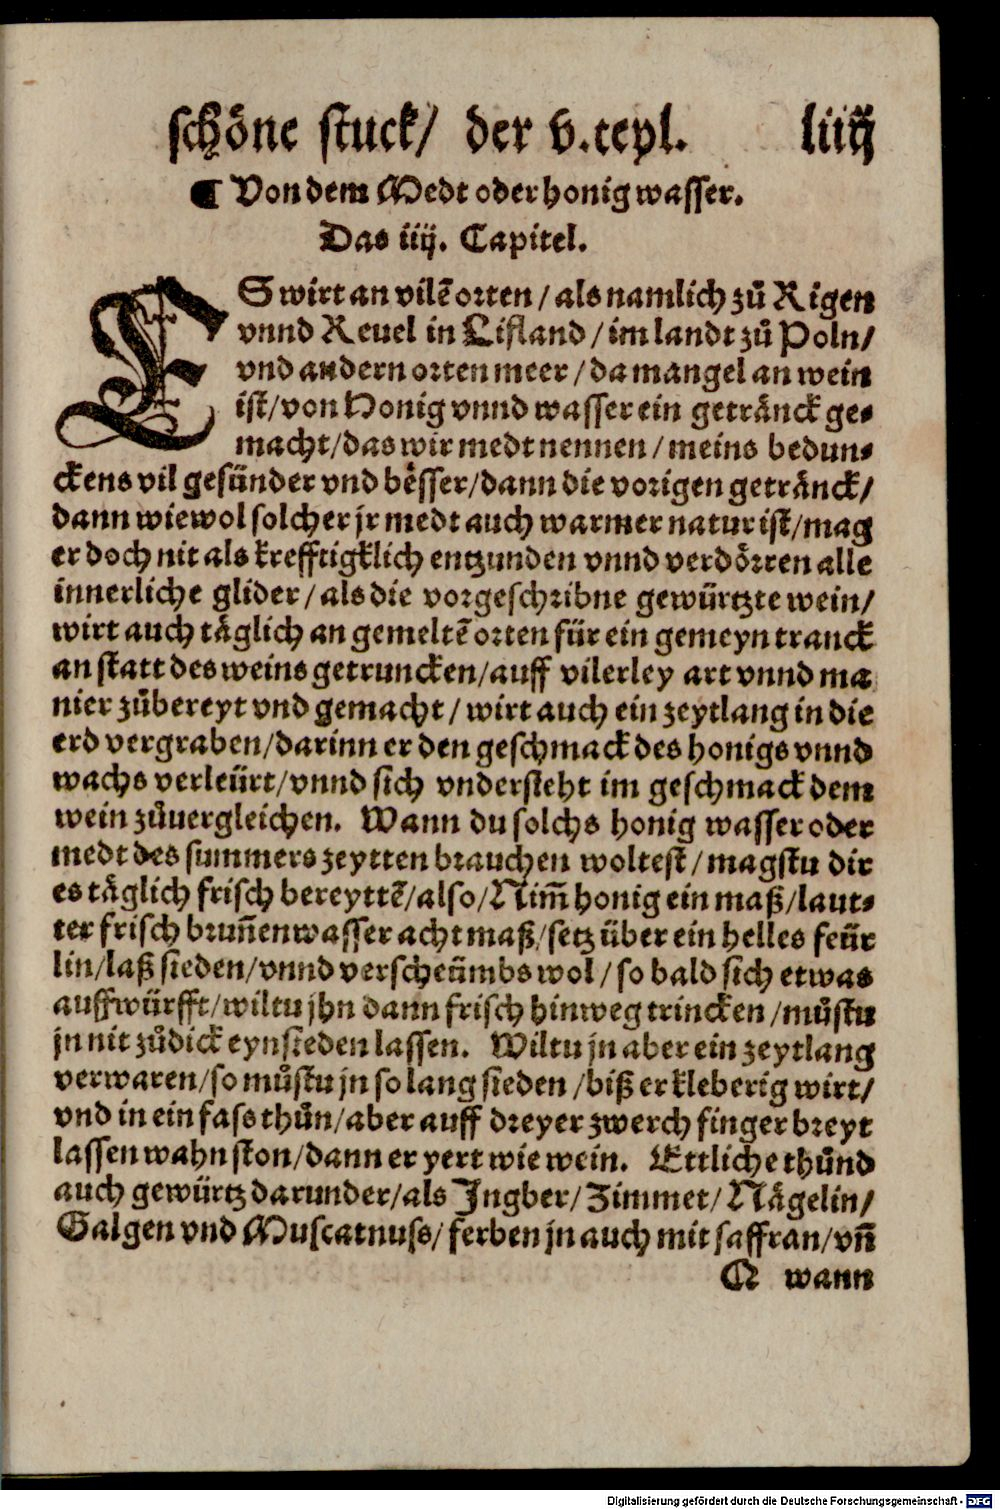 schöne stuck/ der v.teyl. liiij
¶ Von dem Medt oder honig wasser.
Das iiij. Capitel.
ES wirt an vilē orten / als namlich zů Rigen
vnnd Reuel in Lifland / im landt zů Poln/
vnd andern orten meer / da mangel an wein
ist/von Honig vnnd wasser ein getränck ge⸗
macht/das wir medt nennen / meins bedun⸗
ckens vil gesünder vnd besser/dann die vorigen getränck/
dann wiewol solcher jr medt auch warmer natur ist/mag
er doch nit als krefftigklich entzunden vnnd verdörren alle
innerliche glider / als die vorgeschribne gewürtzte wein/
wirt auch täglich an gemeltē orten für ein gemeyn tranck
an statt des weins getruncken/auff vilerley art vnnd ma
nier zůbereyt vnd gemacht / wirt auch ein zeytlang in die
erd vergraben/darinn er den geschmack des honigs vnnd
wachs verleürt/vnnd sich vndersteht im geschmack dem
wein zůuergleichen. Wann du solchs honig wasser oder
medt des summers zeytten brauchen woltest / magstu dir
es täglich frisch bereyttē/also/Nim̄ honig ein maß/laut⸗
ter frisch brun̄enwasser acht maß/setz über ein helles feür
lin/laß sieden/vnnd verscheümbs wol / so bald sich etwas
auffwürfft/wiltu jhn dann frisch hinweg trincken /můstu
jn nit zůdick eynsieden lassen. Wiltu jn aber ein zeytlang
verwaren/so můstu jn so lang sieden /biß er kleberig wirt/
vnd in ein fass thůn/aber auff dreyer zwerch finger breyt
lassen wahn ston/dann er yert wie wein. Ettliche thůnd
auch gewürtz darunder/als Jngber/ Zimmet/ Nägelin/
Galgen vnd Muscatnuss/ ferben jn auch mit saffran/vn̄
Q wann
Digitalisierung gefördert durch die Deutsche Forschungsgemeinschaft - DFG